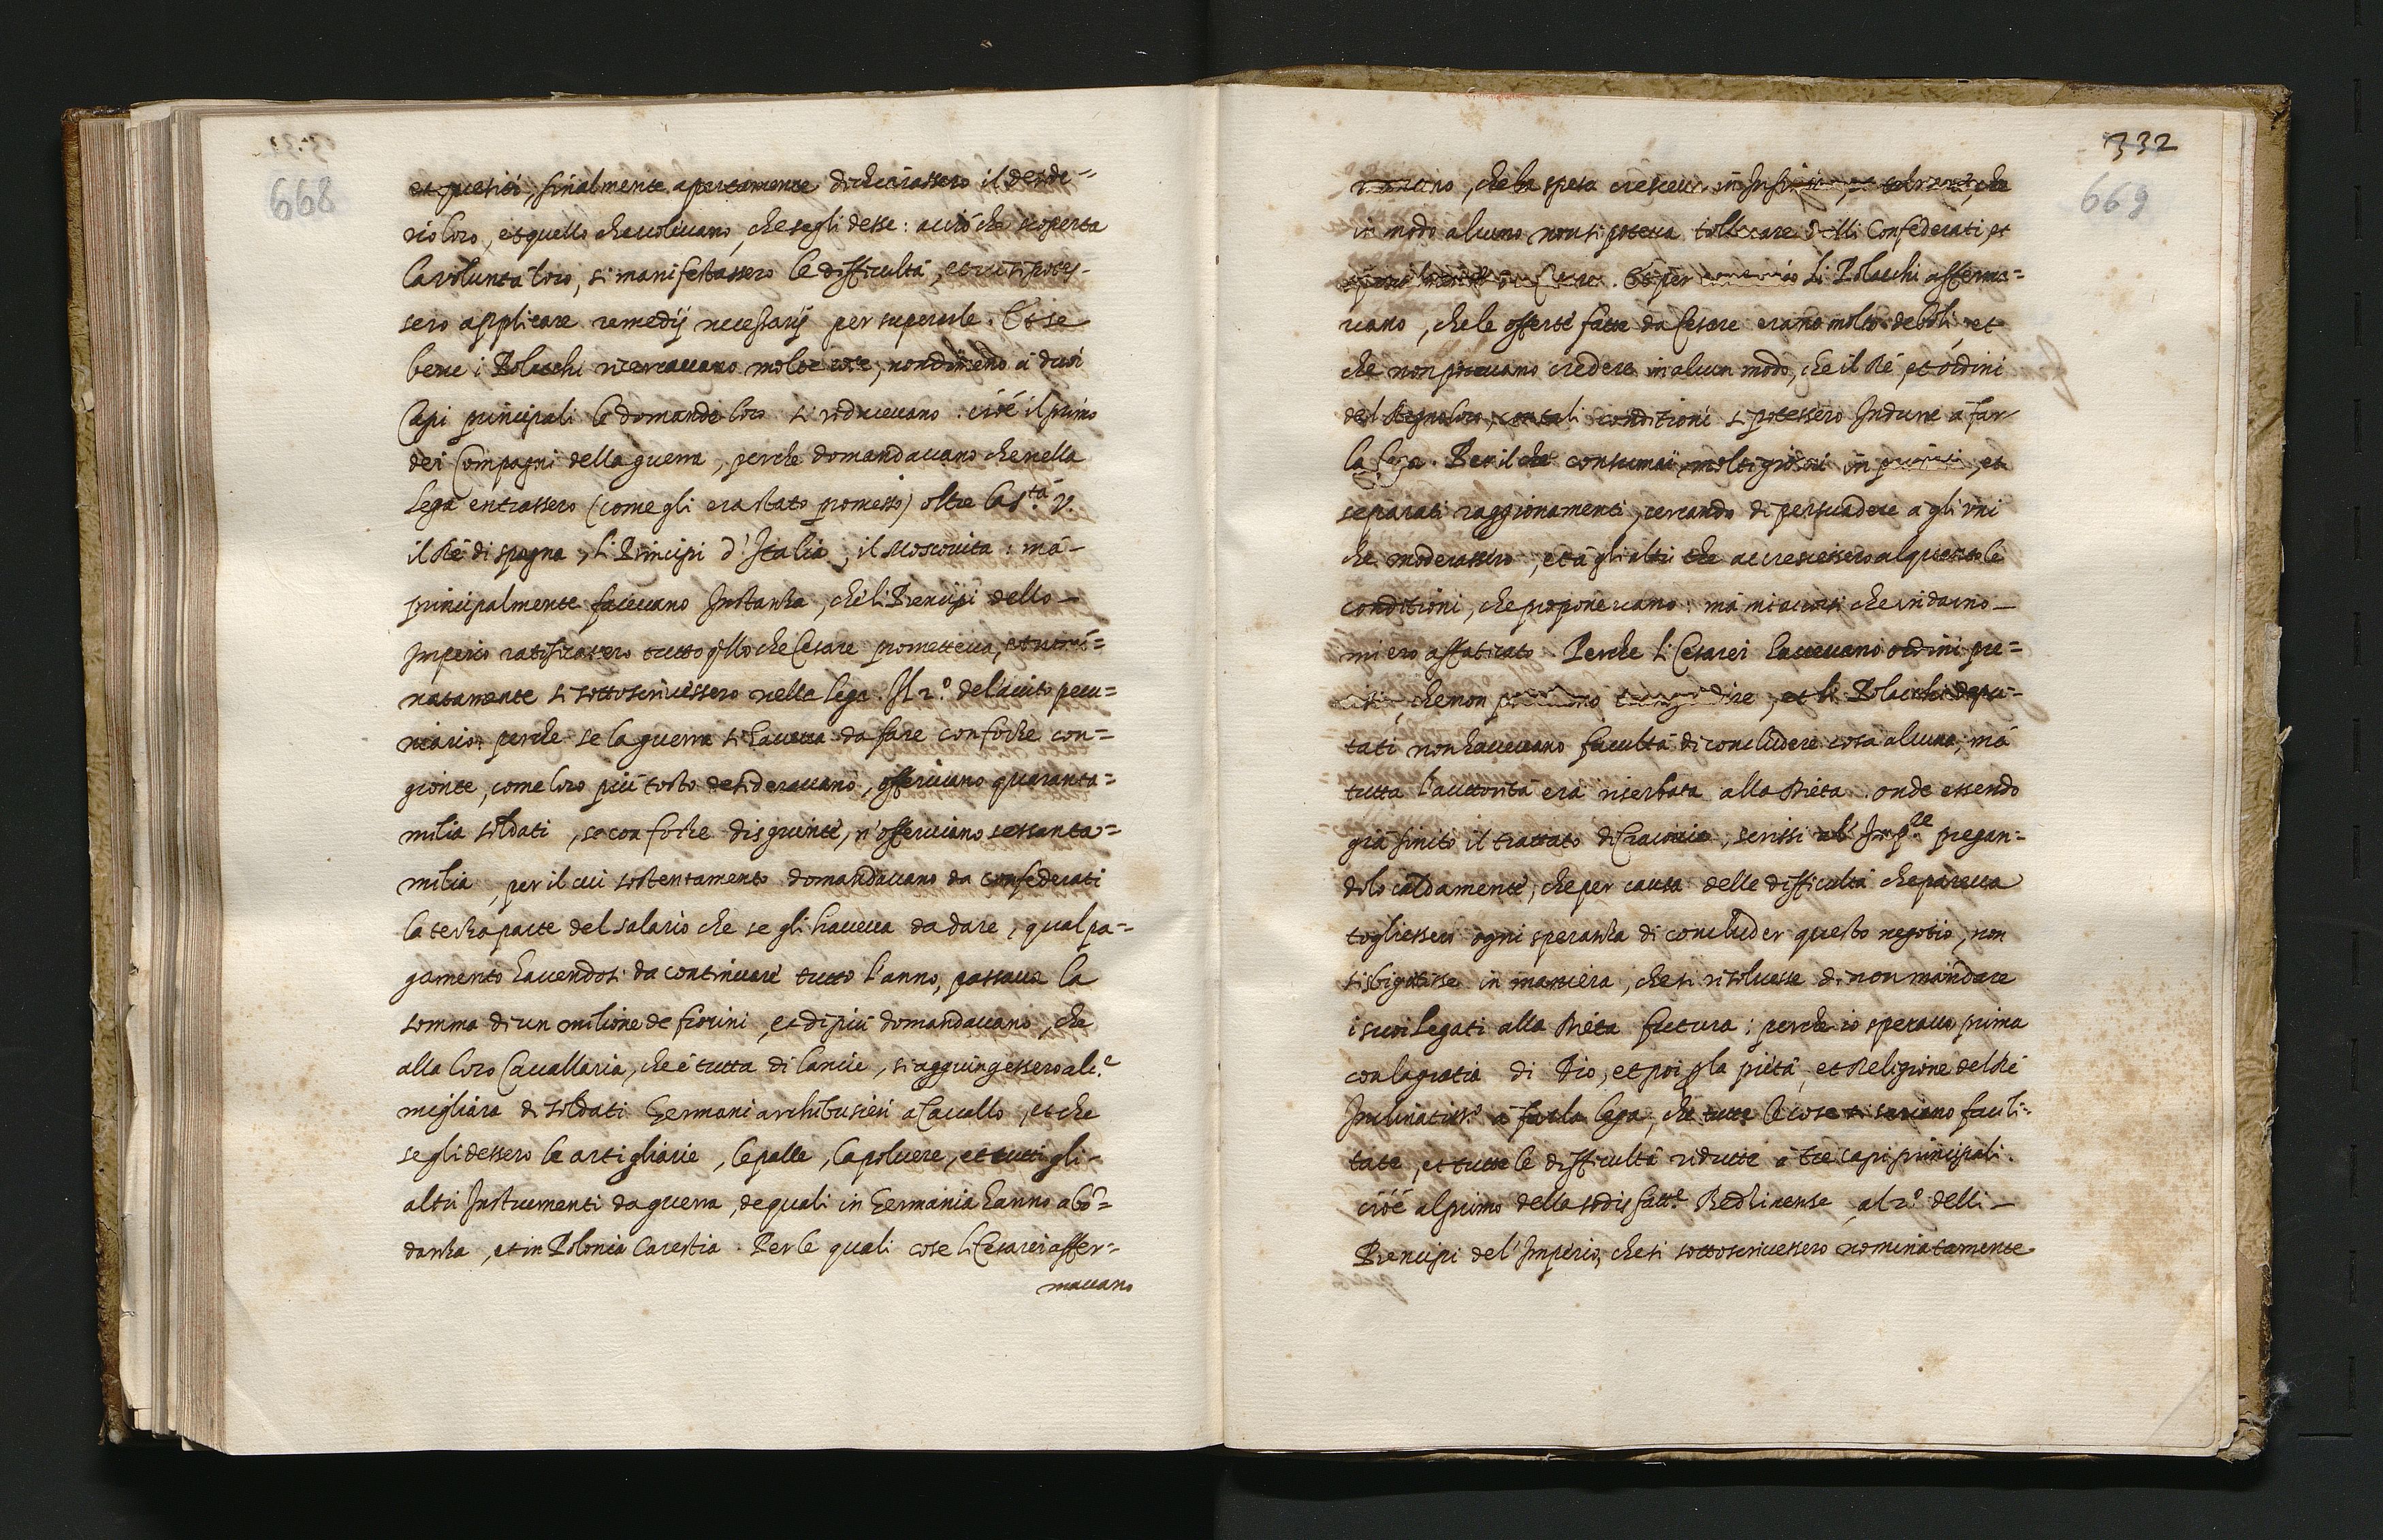 668
et finalmente apertamente dichiarassero il deside=
rio loro, et quello che volevano, che se gli desse: acciò che scoperta
la voluntà loro, si manifestassero le difficultà, et vi si potes-
sero applicare remedij necessarij per superarle. Et se
bene i Polacchi ricercavano molte cose, nondimeno à duoi
Capi principali le domande loro si riducevano: cioè il primo
dei Compagni della guerra, perche domandavano che nella
Lega entrassero (come gli era stato promesso) oltre la S.tà V.
il Rè di spagna, li Principi d'Italia, il Moscovita: mà-
principalmente facevano Instanza, che li Prencipi dello-
Imperio ratificassero tutto qllo che Cesare prometteva, et nomi=
natamente si sottoscrivessero nella lega. Il 2.º del aiuto pecu=
niario: perche se la guerra si haveva da fare con forze con=
gionte, come loro più tosto desideravano, offerivano quaranta=
milia soldati, se con forze disgiunte, n'offerivano sessanta=
milia, per il cui sostentamento domandavano da confederati
la terza parte del salario che se gli haveva da dare, qual pa=
gamento havendosi da continuare tutto l'anno, passava la
somma di un milione de fiorini, et di più domandavano, che
alla loro Cavallaria, che è tutta di lancie, si aggiungessero alc.e
migliara di soldati Germani archibusieri a Cavallo, et che
se gli dessero le artigliarie, le palle, la polvere, et tutti gli-
altri Instrumenti da guerra, de quali in Germania hanno abõ=
danza, et in Polonia Carestia. Per le quali cose li Cesarei affer=
mavano
332
669
che la spesa cresceva in
in modo alcuno non si poteva tollerare dalli Confederati, et
Et per li Polacchi afferma=
vano, che le offerte fatte da Cesare erano molto deboli, et
che non potevano credere in alcun modo, che il Rè, et ordini
del Regno loro, con tali conditioni si potessero Indurre à far
la lega. Per il che consumai molti giorni in et
separati raggionamenti, cercando di persuadere a gli uni
che moderassero, et à gli altri che accrescessero alquanto le
conditioni, che proponevano: mà mi accorsi che indarno-
mi ero affaticato. Perche li Cesarei havevano ordini pre=
che non et li Polacchi depu=
tati non havevano facultà di concludere cosa alcuna, mà
tutta l'auttorità era riserbata alla Dieta. onde essendo
già finito il trattato di Cracovia, scrissi all' Imp.re pregan=
dolo caldamente, che per causa delle difficultà che pareva
togliessero ogni speranza di concluder questo negotio, non
si sbigotisse in maniera, che si risolvesse di non mandare
i suoi Legati alla Dieta futura; perche io speravo prima
con la gratia di Dio, et poi p la pietà, et Religione del Rè
Inclinatiss.º à far la lega, che tutte le cose si sariano facili=
tate, et tutte le difficultà ridutte à tre capi principali.
cioè al primo della sodisfatt.e Bedzinense, al 2.º delli-
Prencipi del' Imperio, che si sottoscrivessero nominatamente